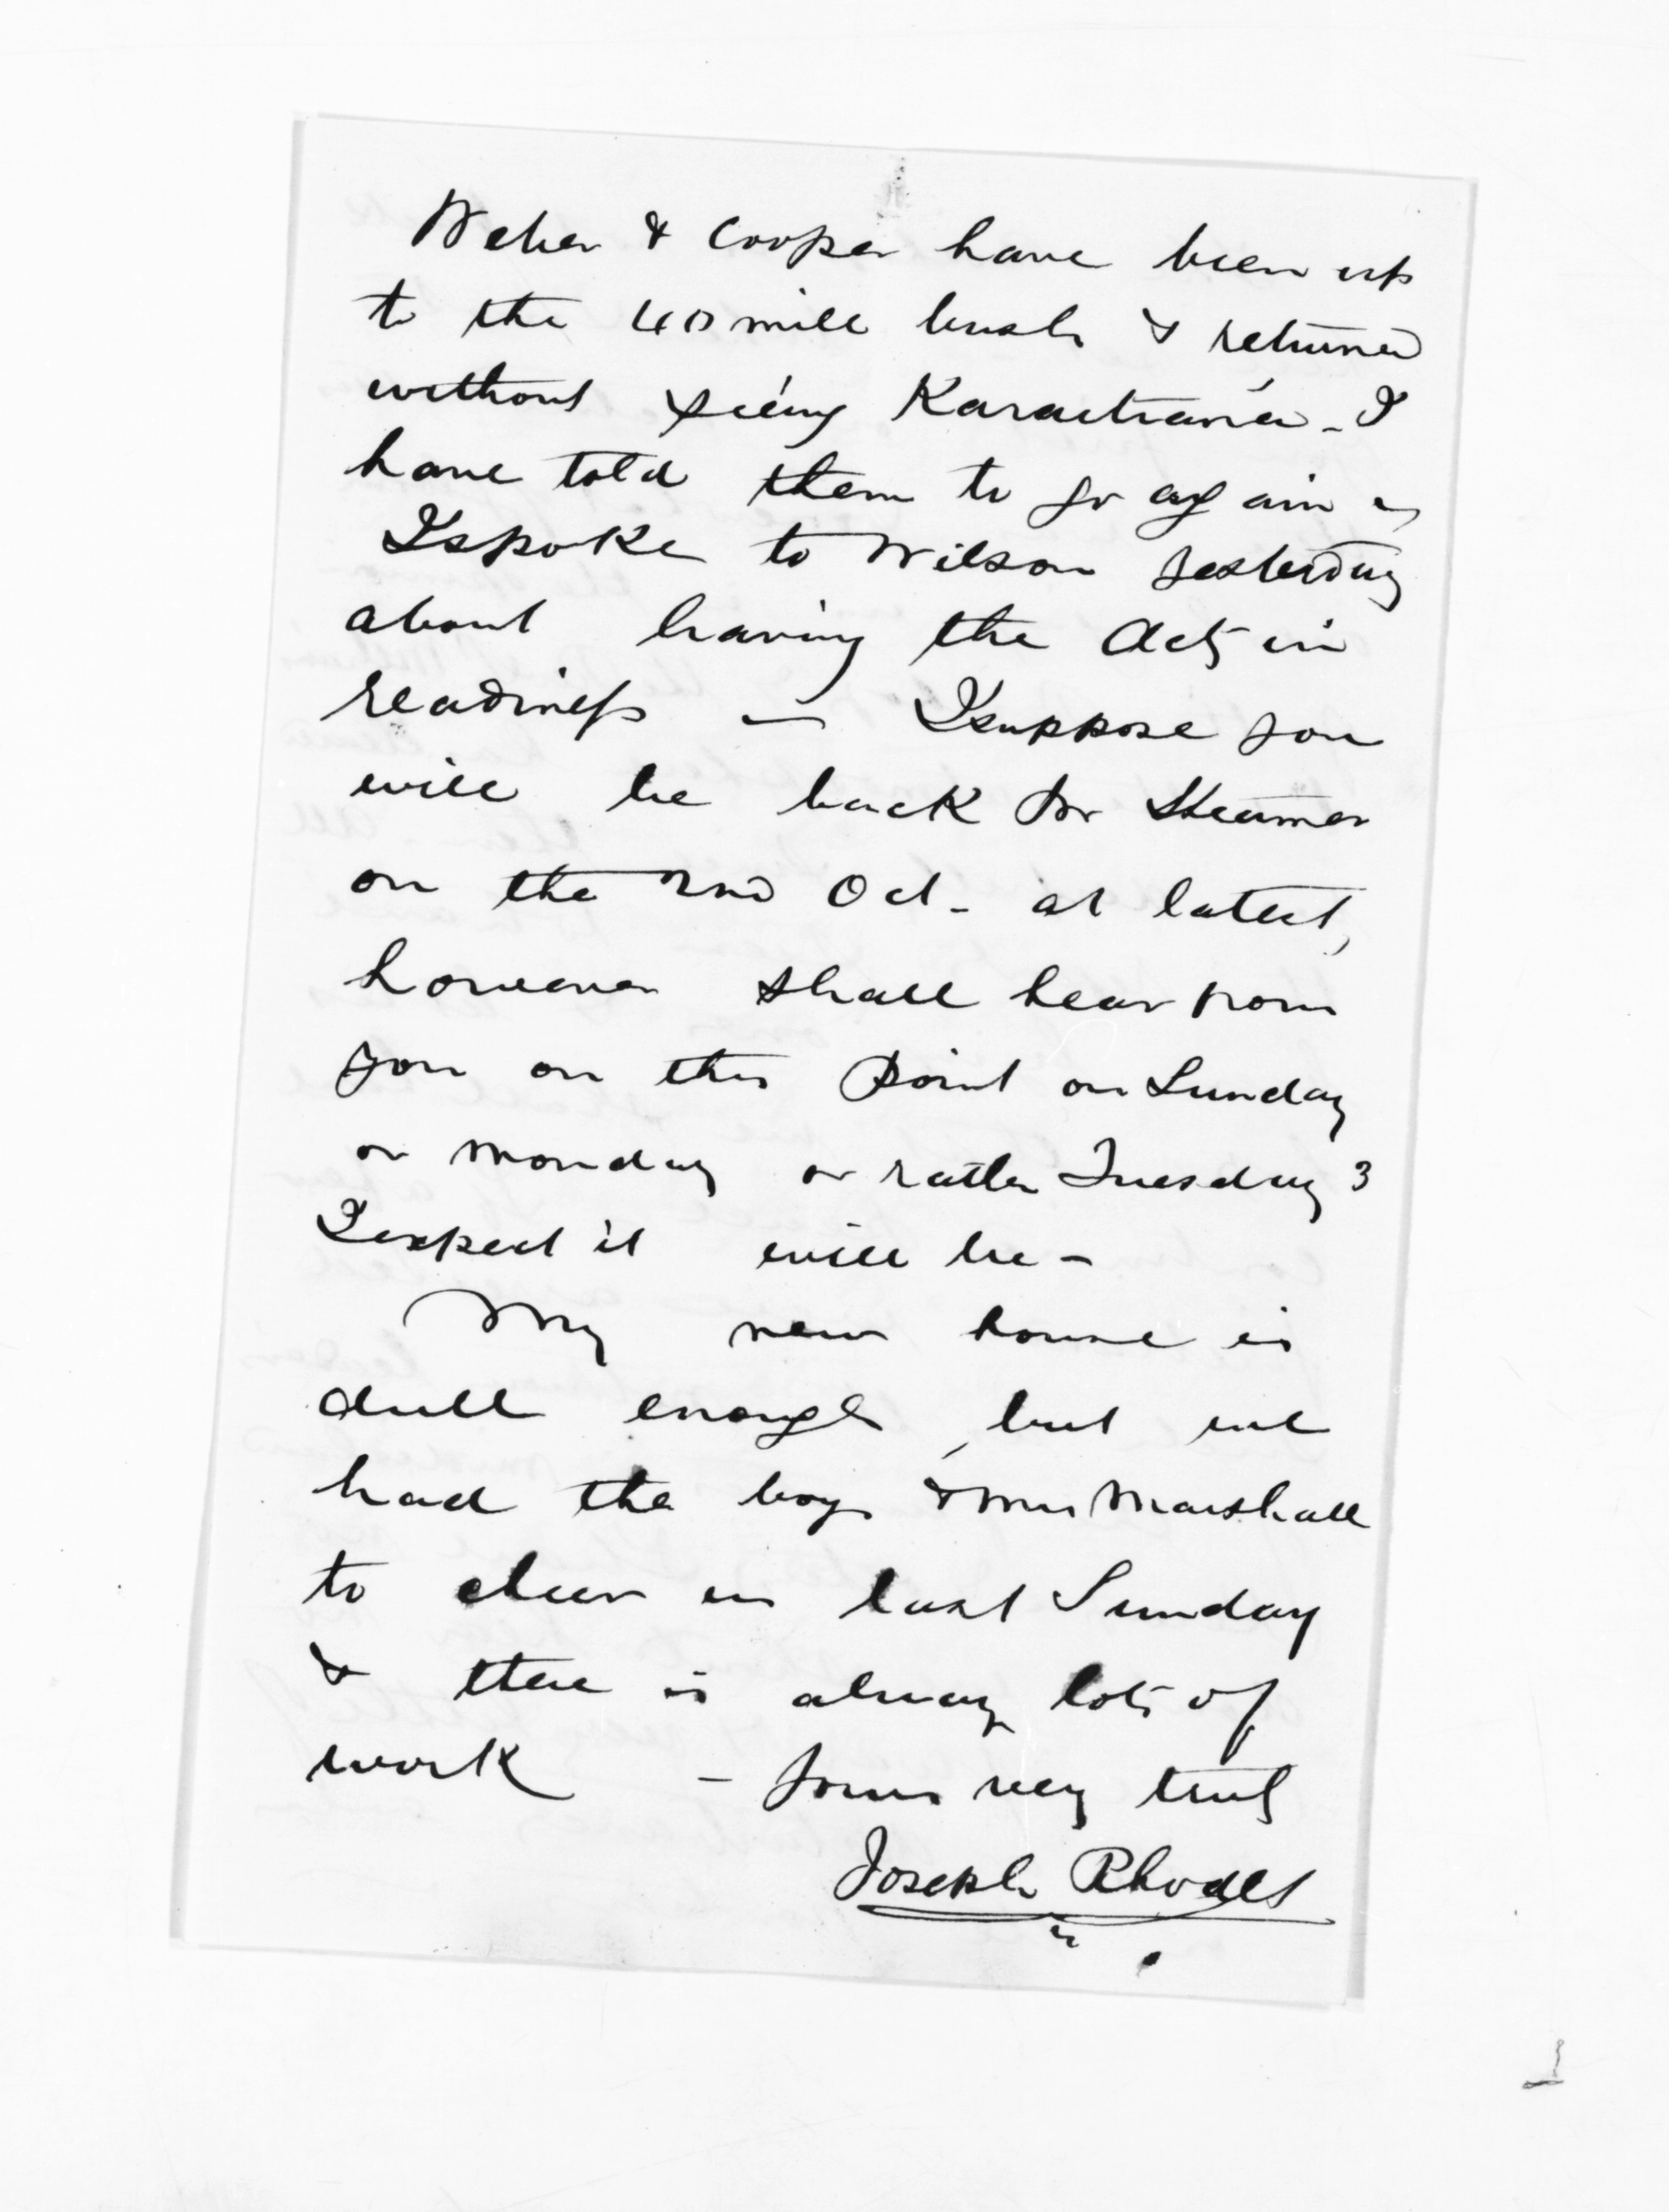 Weber & Cooper have been up
to the 40 mile bush & returned
without seeing Karaitiana - I
have told them to go again -
I spoke to Wilson yesterday
about having the Act in
readiness - I suppose you
will be back for Steamer
on the 2nd Oct - at latest,
however shall hear from
you on this point on Sunday
or Monday or rather Tuesday 3
I expect it will be -
My new house is
dull enough, but we
had the boys & Mrs Marshall
to cheer us last Sunday
& there is always lots of
work - Yours very truly
Joseph Rhodes